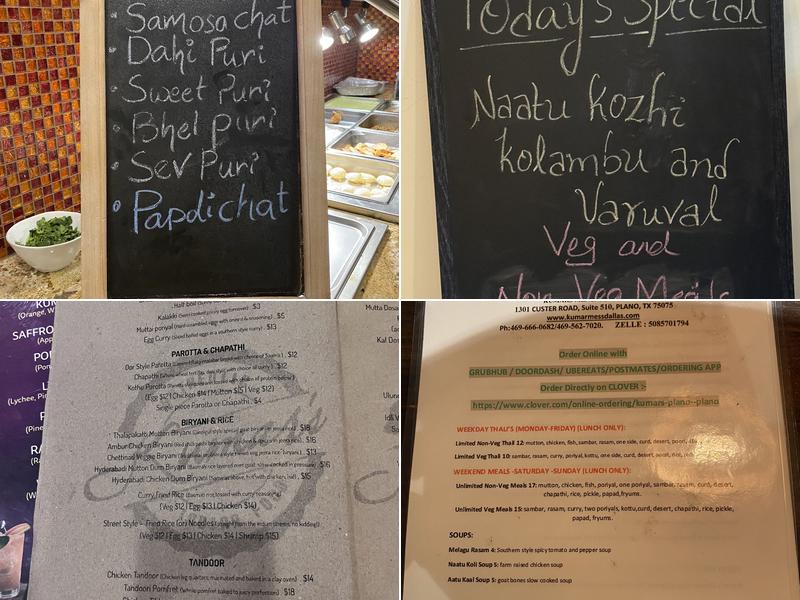 Samosa chat
Dahi Puri
Sweet Puri
Bhel puri
Sev Puri
Papdi chat
Today's Special
Naatu kozhi
kolambu and
Varuval
Veg and
Non-Veg Meals
SAFFRO
Half boil
Kalakki
$3
Muttai poriyal
$5
Egg Curry (boiled eggs in a southern style curry) . $13
PAROTTA & CHAPATHI
$12
$12
Kothu Parotta
(Egg $12 | Chicken $14 | Mutton $15 | Veg $12)
Single piece Parotta or Chapathi . $4
BIRYANI & RICE
Thalapakatu Mutton Biryani
$18
Ambur Chicken Biryani
$16
Chettinad Veggie Biryani
$13
Hyderabadi Nutton Dum Biryani
$16
Hyderabadi Chicken Dum Biryani
$15
Curry Fried Rice
(Veg $12 | Egg $13 | Chicken $14)
Street Style - Fried Rice (or) Noodles (straight from the indian streets, no kidding!)
(Veg $12 | Egg $13 | Chicken $14 | Shrimp $15)
TANDOOR
Chicken Tandoor (Chicken leg quarters, marinated and baked in a clay oven) . $14
Tandoori Pomfret (Whole pomfret baked to juicy perfection) . $18
Mutta Dosa
Kal Do
Idl
1301 CUSTER ROAD, Suite 510, PLANO, TX 75075
www.kumarmessdallas.com
Ph:469-666-0682/469-562-7020. ZELLE : 5085701794
Order Online with
GRUBHUB / DOORDASH/ UBEREATS/POSTMATES/ORDERING APP
Order Directly on CLOVER :-
https://www.clover.com/online-ordering/kumars-plano--plano
WEEKDAY THALI'S (MONDAY-FRIDAY) (LUNCH ONLY):
Limited Non-Veg Thali 12: mutton, chicken, fish, sambar, rasam, one side, curd, desert, poori,
Limited Veg Thali 10: sambar, rasam, curry, poriyal, kottu, one side, curd, desert, poori, rice,
WEEKEND MEALS -SATURDAY -SUNDAY (LUNCH ONLY):
Unlimited Non-Veg Meals 17: mutton, chicken, fish, poriyal, one poriyal, sambar, rasam, curd, desert,
chapathi, rice, pickle, papad,fryums.
Unlimited Veg Meals 15: sambar, rasam, curry, two poriyals, kottu,curd, desert, chapathi, rice, pickle,
papad, fryums.
SOUPS:
Melagu Rasam 4: Southern style spicy tomato and pepper soup
Naatu Koli Soup 5: farm raised chicken soup
Aatu Kaal Soup 5: goat bones slow cooked soup